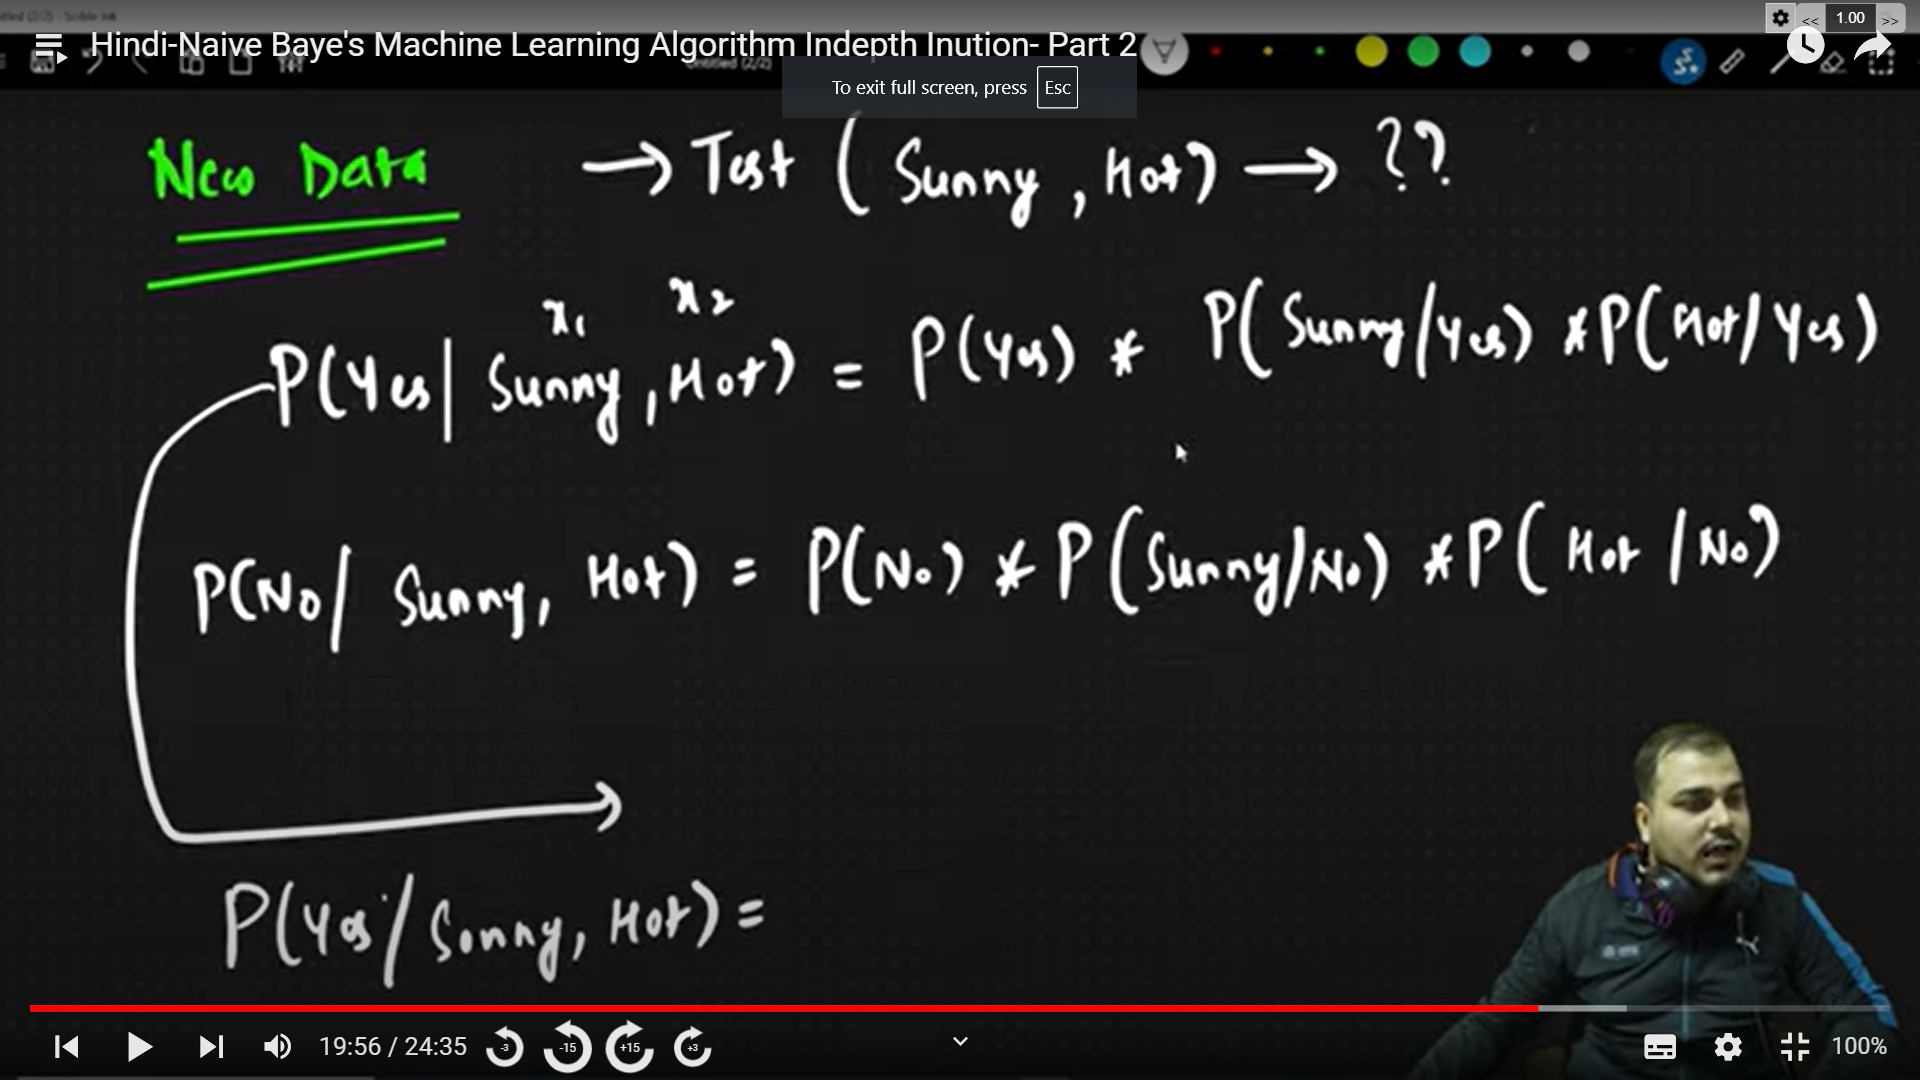 1.00
<< >>
Hindi-Naive Baye's Machine Learning Algorithm Indepth Inution- Part 2
Untitled (2/2)
To exit full screen, press Esc
New Data → Test ( Sunny , Hot) → ??
x1 x2
P(Yes| Sunny, Hot) = P(Yes) * P(Sunny/Yes) *P(Hot/Yes)
P(No/ Sunny, Hot) = P(No) * P(Sunny/No) *P( Hot /No)
P(Yes/Sunny, Hot) =
19:56 / 24:35 -3 -15 +15 +3 100%